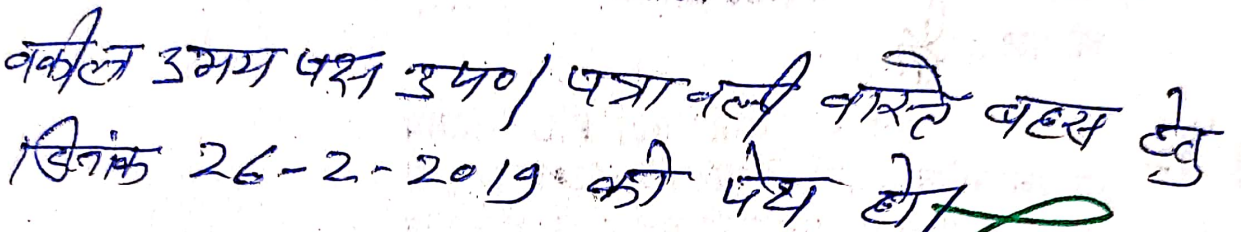 वकील उभय पक्ष उप०। पत्रावली वास्ते बहस हेतु
दिनांक 26-2-2019 को पेश हो।